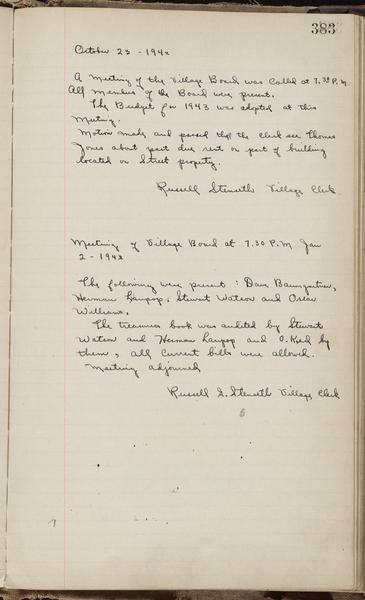 383
October 23 - 1942
A Meeting of the Village Board was Called at 7.30 P.M.
All Members of the Board were present.
The Budget for 1943 was adopted at this
Meeting.
Motion made and passed that the clerk see Thomas
Jones about past due rent on part of building
located on Street property.
Russell Stenseth Village Clerk
Meeting of Village Board at 7.30 P.M Jan
2 - 1942
The following were present : Dave Baumgartner,
Herman Langop, Stewart Watson and Oscar
Williams.
The treasures book was audited by Stewart
Watson and Herman Langop and O.Ked by
them, all Current bills were allowed.
Meeting adjourned
Russell G. Stenseth Village Clerk